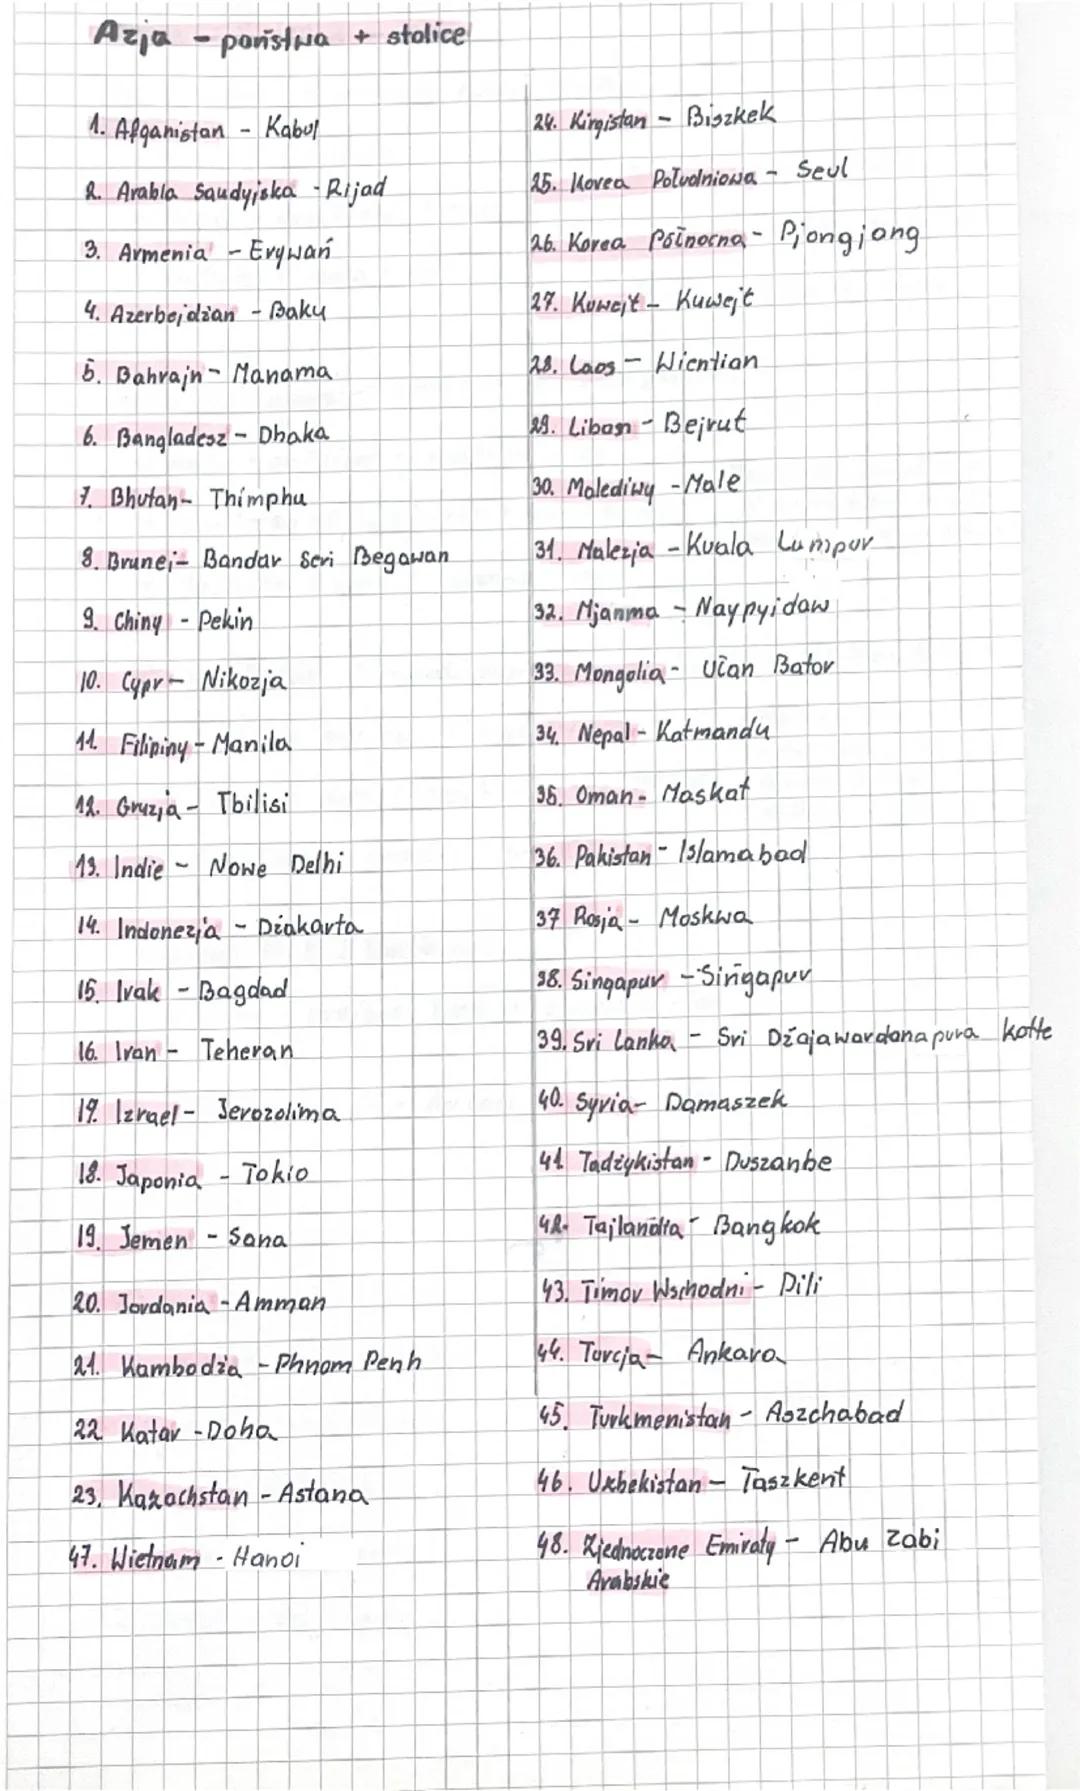 Azja - państwa + stolice
1. Afganistan - Kabul
2. Arabia Saudyjska - Rijad
3. Armenia - Erywań
4. Azerbejdżan - Baku
5. Bahrajn - Manama
6. Bangladesz - Dhaka
7. Bhutan - Thimphu
8. Brunej - Bandar Seri Begawan
9. Chiny - Pekin
10. Cypr - Nikozja
11. Filipiny - Manila
12. Gruzja - Tbilisi
13. Indie - Nowe Delhi
14. Indonezja - Dżakarta
15. Irak - Bagdad
16. Iran - Teheran
17. Izrael - Jerozolima
18. Japonia - Tokio
19. Jemen - Sana
20. Jordania - Amman
21. Kambodża - Phnom Penh
22 Katar - Doha
23. Kazachstan - Astana
47. Wietnam - Hanoi
24. Kirgistan - Biszkek
25. Korea Południowa - Seul
26. Korea Północna - Pjongjang
27. Kuwejt - Kuwejt
28. Laos - Wientian
29. Liban - Bejrut
30. Malediwy - Male
31. Malezja - Kuala Lumpur
32. Mjanma - Naypyidaw
33. Mongolia - Ułan Bator
34. Nepal - Katmandu
35. Oman - Maskat
36. Pakistan - Islamabad
37 Rosja - Moskwa
38. Singapur - Singapur
39. Sri Lanka - Sri Dżajawardanapura Kotte
40. Syria - Damaszek
41 Tadżykistan - Duszanbe
42. Tajlandia - Bangkok
43. Timor Wschodni - Dili
44. Turcja - Ankara
45. Turkmenistan - Aszchabad
46. Uzbekistan - Taszkent
48. Zjednoczone Emiraty - Abu Zabi
Arabskie